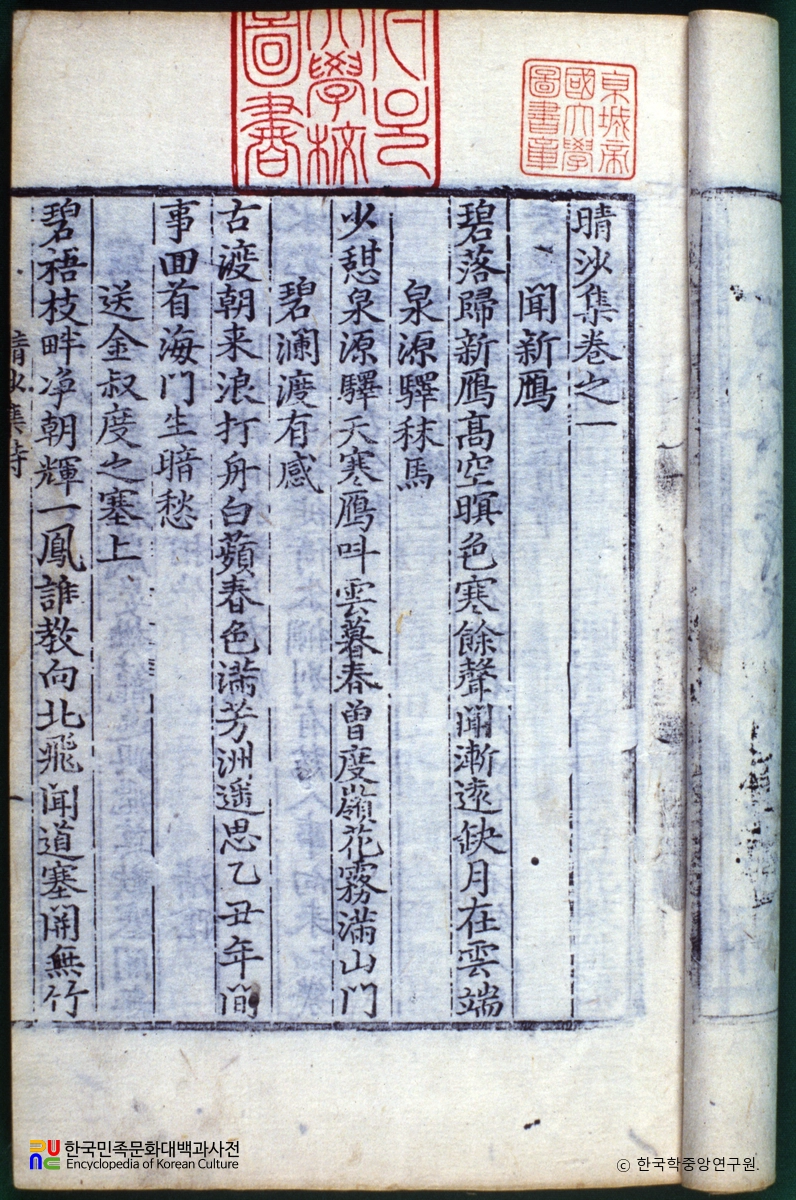 晴沙集卷之一
聞新鴈
碧落歸新鴈高空暝色寒餘聲聞漸遠缺月在雲端
泉源驛秣馬
少憩泉源驛天寒鴈叫雲暮春曾度嶺花霧滿山門
碧瀾渡有感
古渡朝来浪打舟白蘋春色滿芳洲遥思乙丑年間
事回首海門生暗愁
送金叔度之塞上
碧梧枝畔淨朝輝一鳳誰教向北飛聞道塞開無竹
晴沙集詩
京城帝
國大學
圖書章
大學校
圖書
한국민족문화대백과사전
Encyclopedia of Korean Culture
© 한국학중앙연구원.